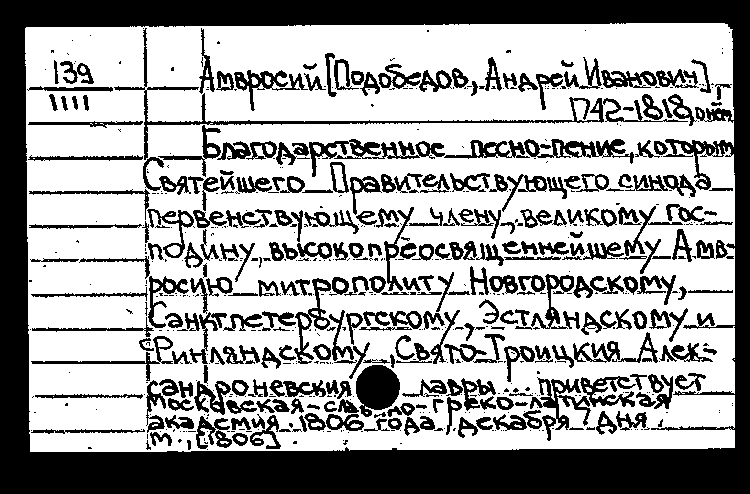 139
1111
Амвросий [Подобедов, Андрей Иванович],
1742-1818,
Благодарственное песно-пение, которым
Святейшего Правительствующего синода
первенствующему члену, великому гос-
подину, высокопреосвященнейшему Амв-
росию митрополиту Новгородскому,
Санктпетербургскому, Эстляндскому и
Финляндскому, Свято-Троицкия Алек-
сандроневския лавры... приветствует
Московская-славяно-греко-латинская
академия. 1806 года, декабря 7 дня.
м., [1806].